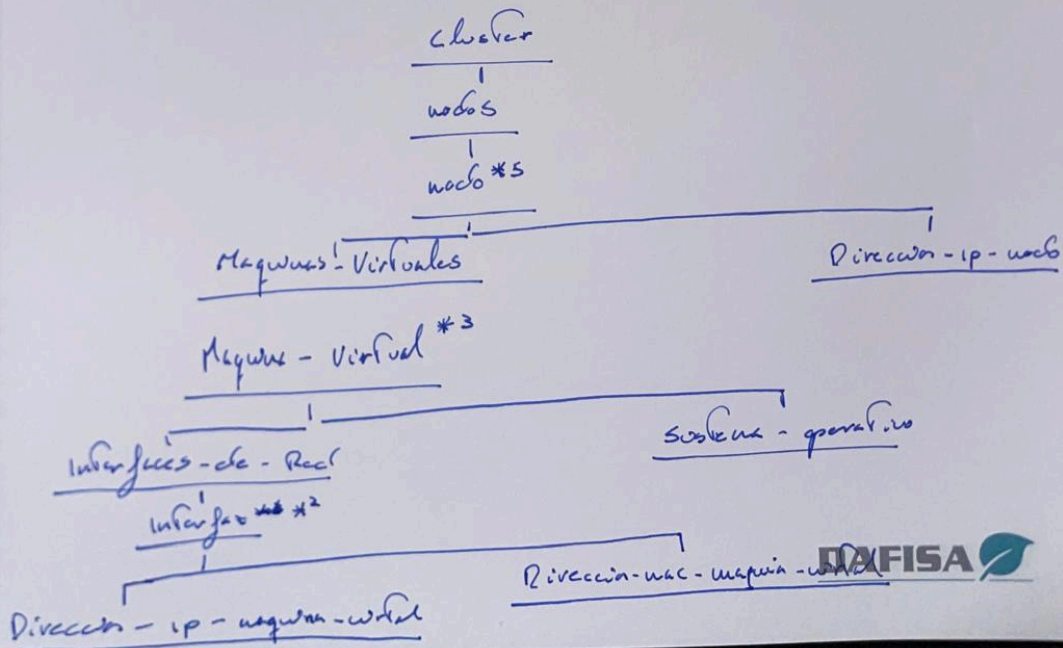 Cluster
nodos
nodo *5
Maquinas-Virtuales
Dirección-ip-nodo
Maquina-Virtual *3
Interfaces-de-Red
Sistema-operativo
Interfaz *2
Dirección-mac-maquina-virtual
DAFISA
Dirección-ip-maquina-virtual